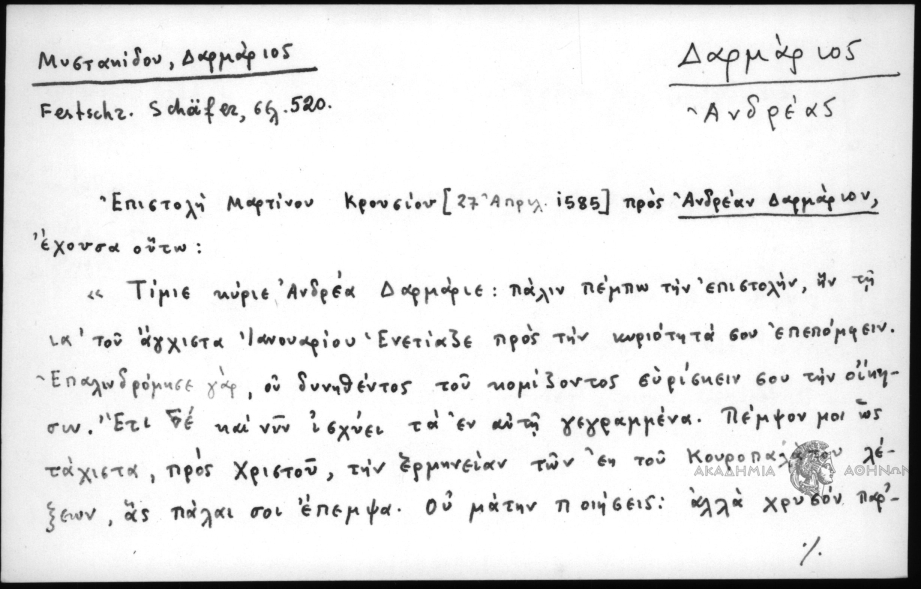 Μυστακίδου, Δαρμάριος
Festschr. Schäfer, σελ. 520.
Δαρμάριος
Ἀνδρέας
Ἐπιστολή Μαρτίνου Κρουσίου [27 Ἀπριλ. 1585] πρός Ἀνδρέαν Δαρμάριον,
ἔχουσα οὕτω:
« Τίμιε κύριε Ἀνδρέα Δαρμάριε: πάλιν πέμπω τήν ἐπιστολήν, ἥν τῇ
ια' τοῦ ἄγχιστα Ἰανουαρίου Ἐνετίαζε πρός τήν κυριότητά σου ἐπεπόμφειν.
Ἐπαλινδρόμησε γάρ, οὐ δυνηθέντος τοῦ κομίζοντος εὑρίσκειν σου τήν οἴκη-
σιν. Ἔτι δέ καί νῦν ἰσχύει τά ἐν αὐτῇ γεγραμμένα. Πέμψον μοι ὡς
τάχιστα, πρός Χριστοῦ, τήν ἑρμηνείαν τῶν ἐκ τοῦ Κουροπαλάτου λέ-
ξεων, ἅς πάλαι σοι ἔπεμψα. Οὐ μάτην ποιήσεις: ἀλλά χρυσόν παρ'-
ΑΚΑΔΗΜΙΑ ΑΘΗΝΩΝ
./.